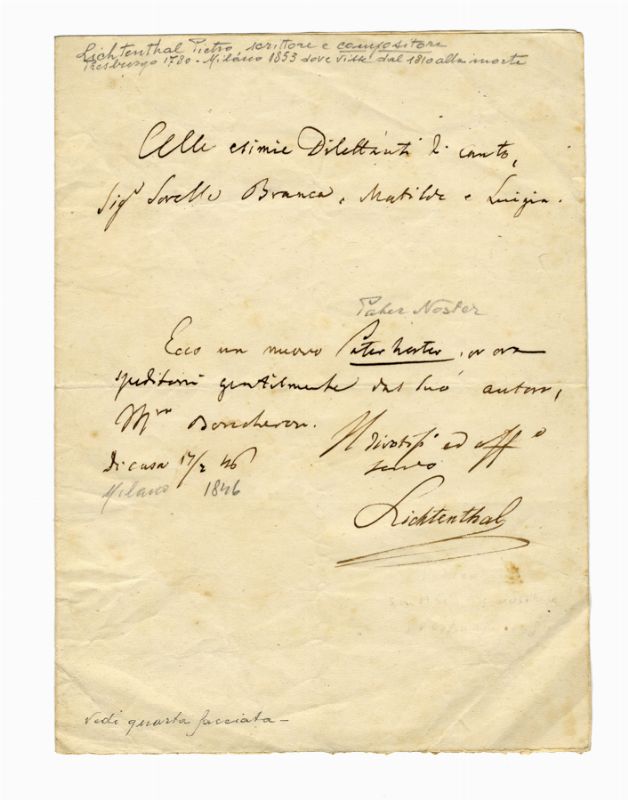 Lichtenthal Pietro, scrittore e compositore
Presburgo 1780 - Milano 1853 dove visse dal 1810 alla morte
Alle esimie Dilettanti di canto,
Sig.e Sorelle Branca, Matilde e Luigia.
Pater Noster
Ecco un nuovo Pater noster, or ora
speditomi gentilmente dal suo autore,
Mro Boucheron.
Il divotiss ed aff o
servo
Di casa 17/2 46
Milano 1846
Lichtenthal
Vedi quarta facciata -